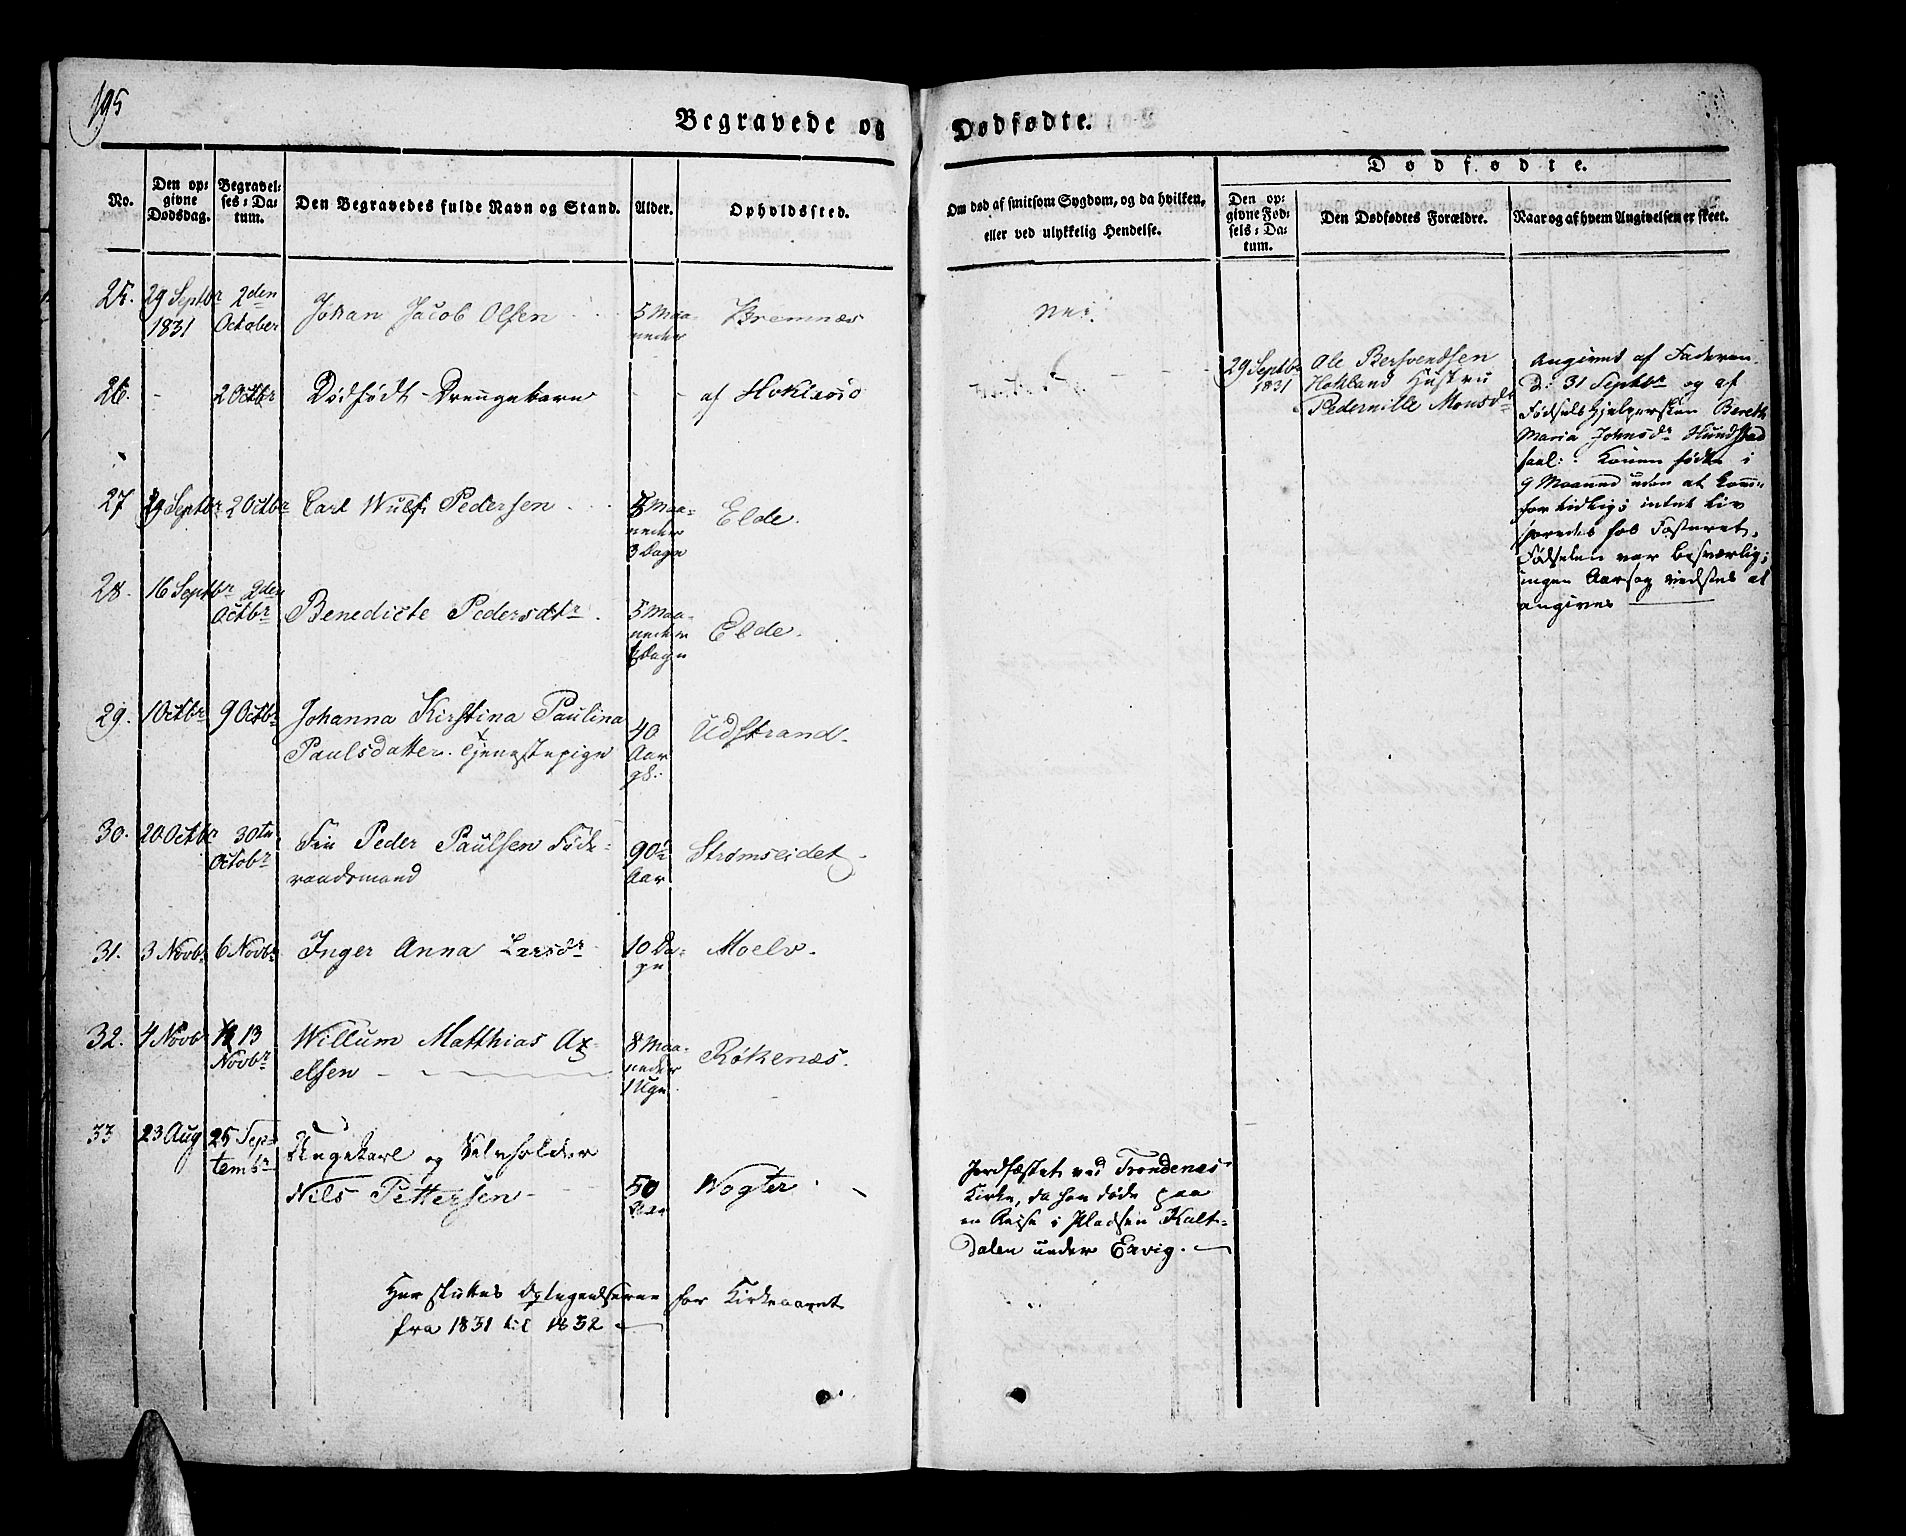 195
Begravede og Dødfødte.
No.
Den opgivne Dødsdag.
Begravelses-Datum.
Den Begravedes fulde Navn og Stand.
Alder.
Opholdssted.
Om død af smitsom Sygdom, og da hvilken, eller ved ulykkelig Hendelse.
Dødfødte.
Den opgivne Fødsels-Datum.
Den Dødfødtes Forældre.
Naar og af hvem Angivelsen er skeet.
25. 29 Septbr 1831 2den October Johan Jacob Olsen 5 Maaneder Bremnæs Nei.
26. - 2 Octbr Dødfødt Drengebarn - - af Hoklevio
29 Septbr 1831
Ole Bersvendsen
Hokland Hustru
Pedernille Monsdr
Angivet af Faderen
D: 31 Septbr og af
Fødselshjelpersken Bereth
Maria Johnsdr Hundstad
saal: Konen fødte i
9 Maaned uden at komme
for tidlig; intet Liv
sporedes hos Fosteret,
Fødselen var besværlig;
ingen Aarsag vidstes at
angives
27 29 Septbr 2 Octbr Carl Wulf Pedersen Maaneder 3 Dage Elde.
28. 16 Septbr 2den Octbr Benedicte Pedersdtr. 5 Maaneder Dage Elde.
29. 1 Octbr 9 Octbr Johanna Kirstina Paulina
Paulsdatter. Tjenestepige 40 Aar gl: Udstrand.
30. 20 Octbr 30te Octobr Fin Peder Paulsen Føde-
raadsmand 90 Aar Strømseidet.
31. 3 Novbr 6 Novbr Inger Anna Larsdr 10 Dage Moelv.
32. 4 Novbr 13 Novbr Willum Matthias Ax-
elsen 8 Maaneder 1 Uge Røkenæs.
33 23 Aug 25 Septembr Ungkarl og Selvholder
Nils Pettersen 50 Aar Wogter
Jordfæstet ved Trondenæs
Kirke, da han døde paa
en Reise i Pladsen Kalt-
dalen under Ervig.
Her sluttes Optegnelserne for Kirkeaaret
fra 1831 til 1832